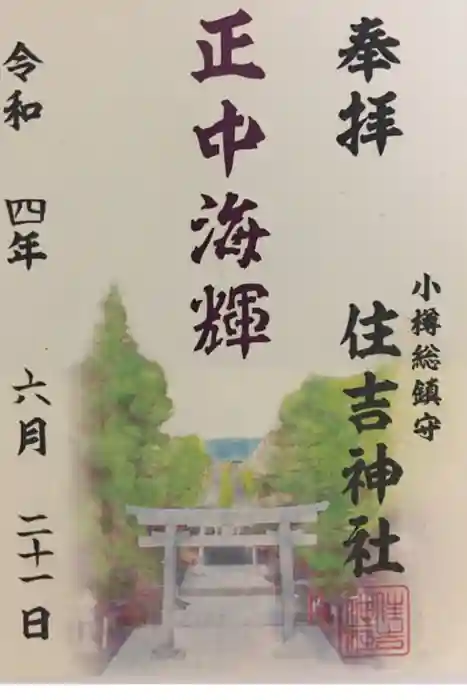 奉拝
小樽総鎮守
住吉神社
正中海輝
令和 四年 六月 二十一日